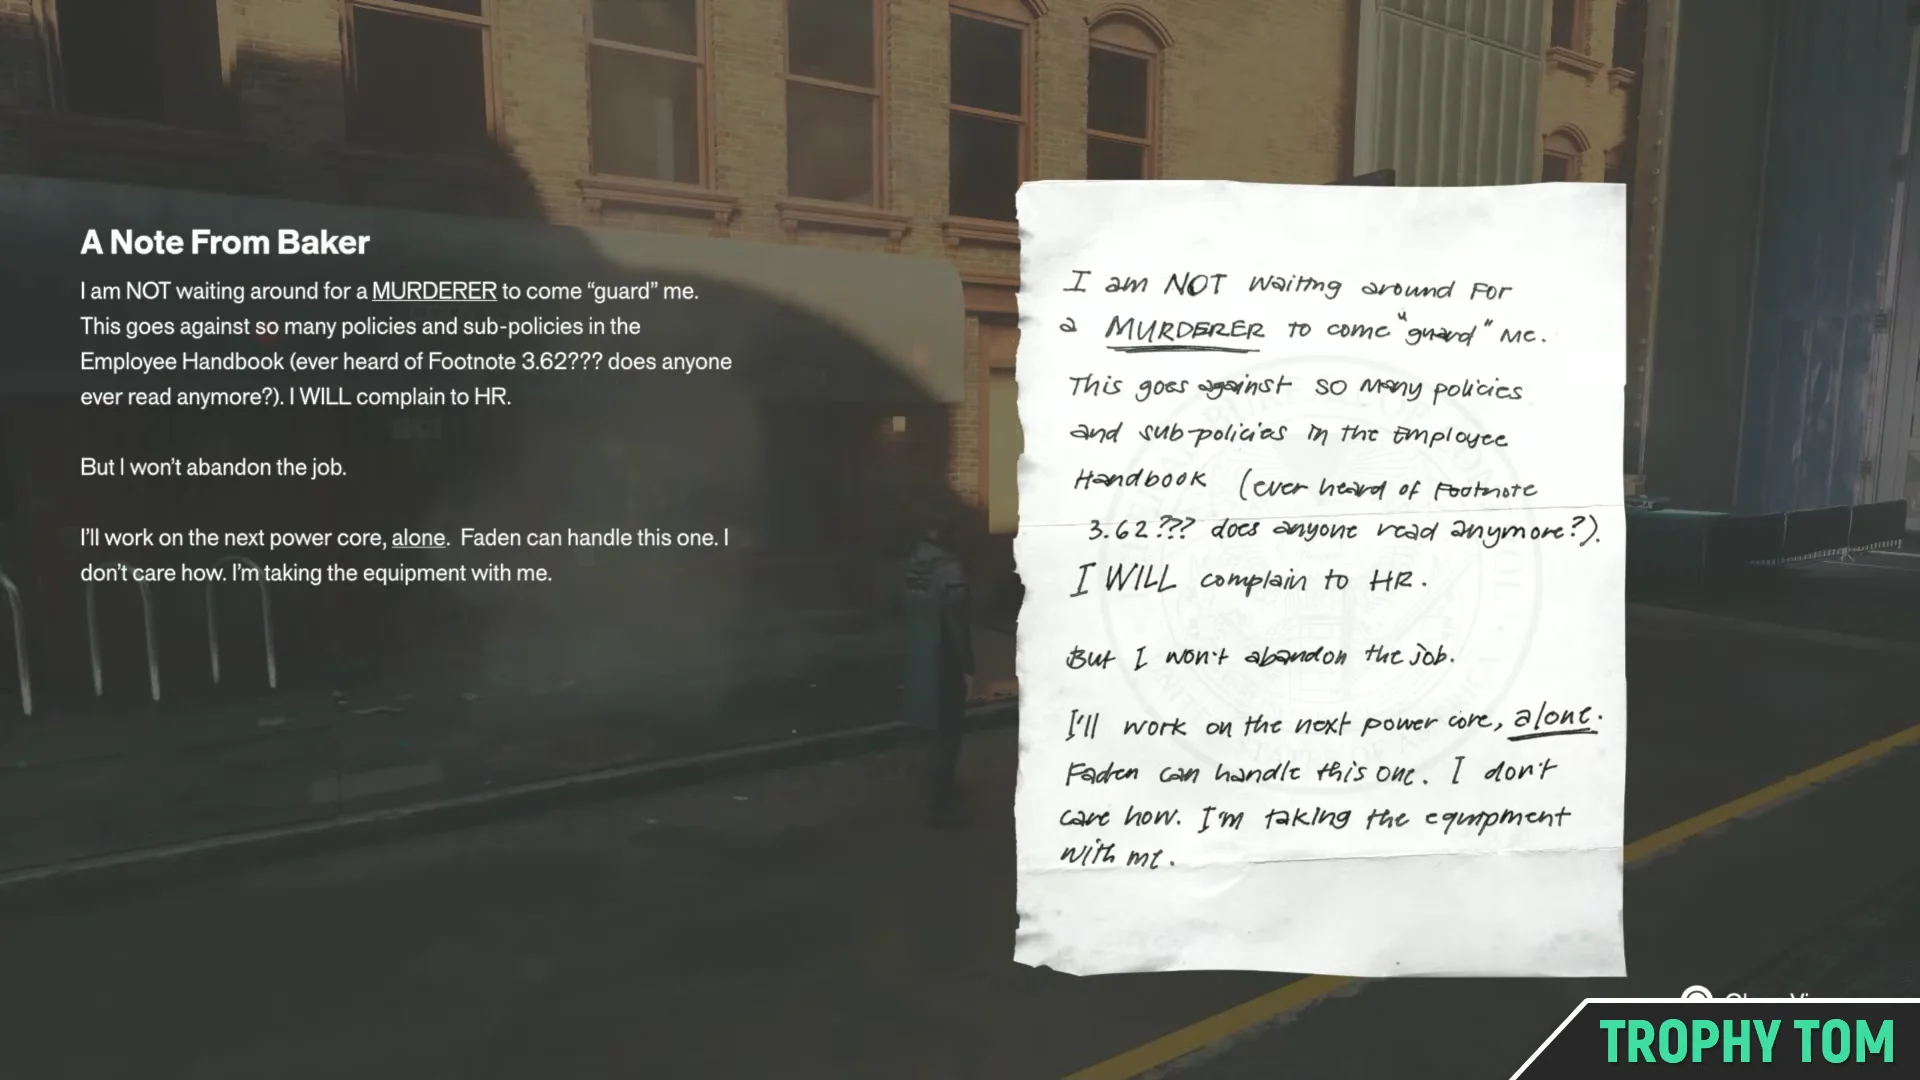 A Note From Baker
I am NOT waiting around for a MURDERER to come “guard” me.
This goes against so many policies and sub-policies in the
Employee Handbook (ever heard of Footnote 3.62??? does anyone
ever read anymore?). I WILL complain to HR.
But I won’t abandon the job.
I’ll work on the next power core, alone.  Faden can handle this one. I
don’t care how. I’m taking the equipment with me.
I am NOT waiting around for
a MURDERER to come "guard" me.
This goes against so many policies
and sub-policies in the Employee
Handbook (ever heard of Footnote
3.62??? does anyone read anymore?).
I WILL complain to HR.
But I won't abandon the job.
I'll work on the next power core, alone.
Faden can handle this one. I don't
care how. I'm taking the equipment
with me.
TROPHY TOM